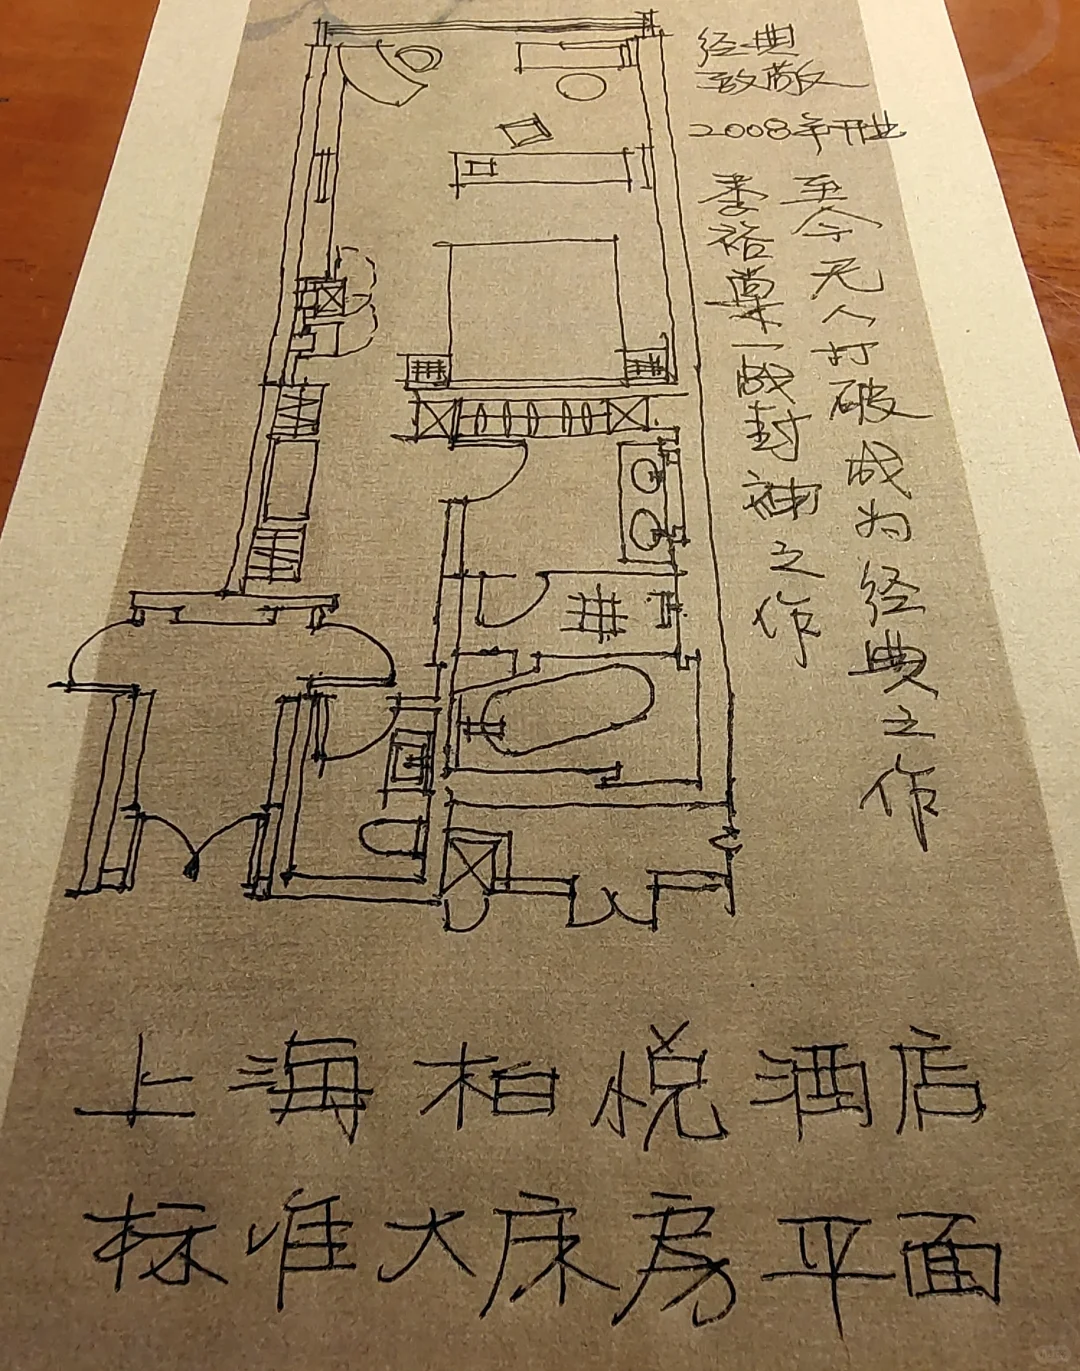 经典
致敬
2008年开业
至今无人打破成为经典之作
季裕棠一战封神之作
上海柏悦酒店
标准大床房平面